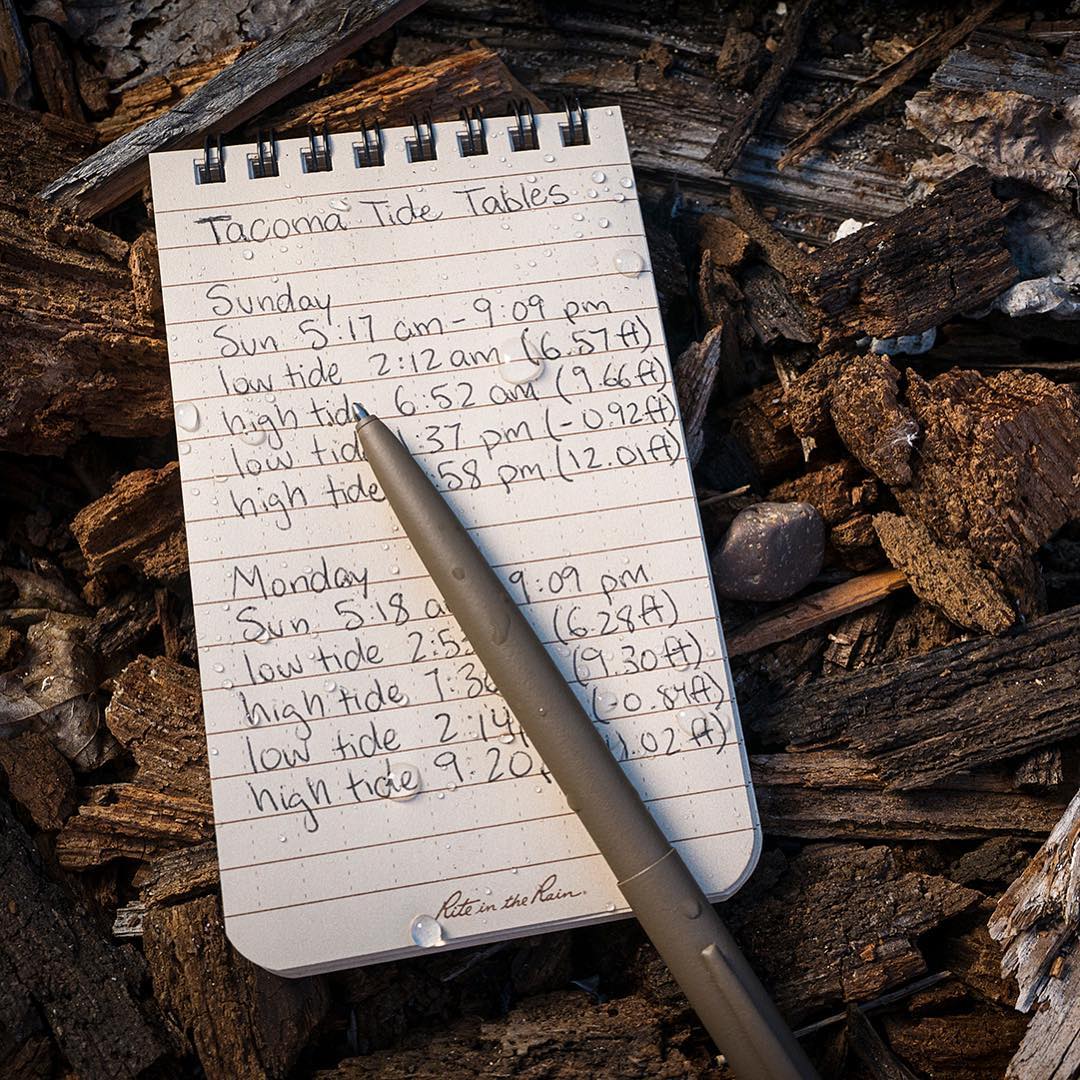 Tacoma Tide Tables
Sunday
Sun 5:17 am - 9:09 pm
low tide 2:12 am (6.57ft)
high tide 6:52 am (9.66ft)
low tide :37 pm (-0.92ft)
high tide :58 pm (12.01ft)
Monday
Sun 5:18 a 9:09 pm
low tide 2:5 (6.28ft)
high tide 7:3 (9.30ft)
low tide 2:14 (-0.84ft)
high tide 9:20 .02 ft)
Rite in the Rain